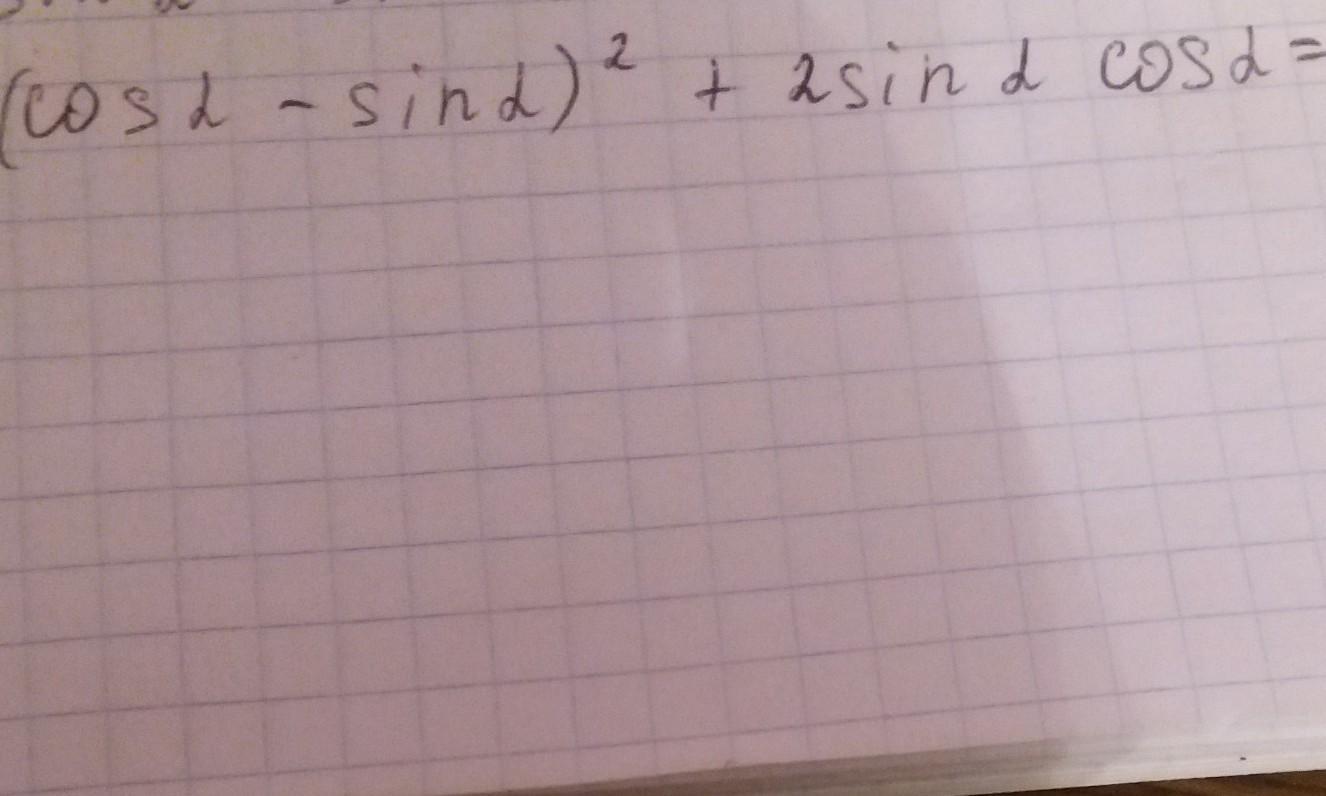 (cos α - sin α)² + 2 sin α cos α =